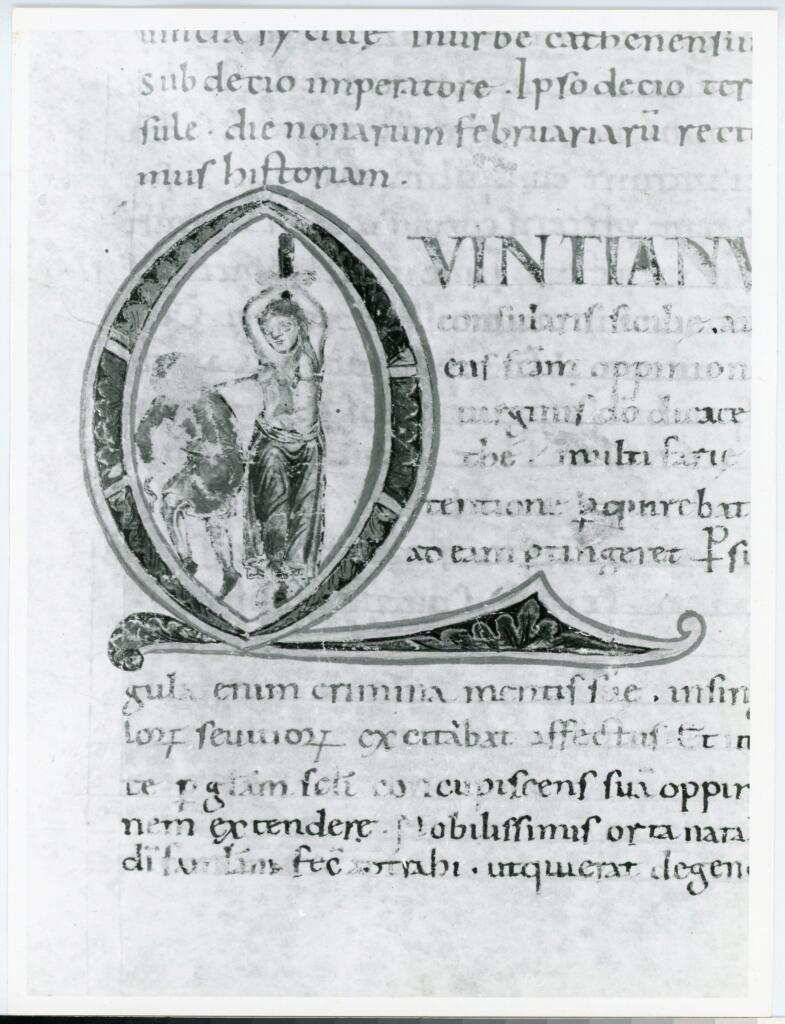 in urbe cathenensiu
sub decio imperatore . Ipso decio ter
sule . die nonarum februariarū recti
mus historiam .
QVINTIANV
consularis sicilie . au
ens scām oppinion
virginis dō dicate
the . multi farie
tentione pquirebat
ad eam ptingeret
gula enim crimina mentis sue . insin
excitabat affectus . Et
te p concupiscens suā oppin
nem extendere . Nobilissimis orta nata
fec . utqui erat degen